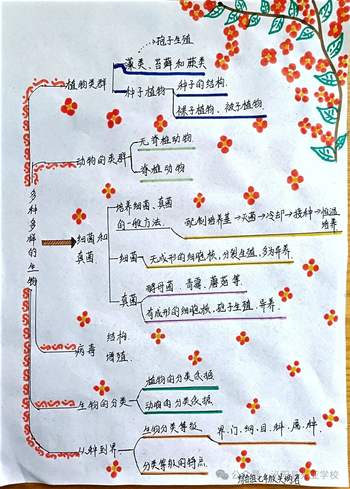 孢子生殖
植物类群
藻类、苔藓和蕨类
种子植物
种子的结构.
裸子植物、被子植物.
动物的类群
无脊椎动物
脊椎动物
多种多样的生物
细菌和
真菌
培养细菌、真菌
的一般方法.
配制培养基→灭菌→冷却→接种→恒温
培养
细菌
无成形的细胞核,分裂生殖,多为异养.
真菌
酵母菌 青霉、蘑菇等
有成形的细胞核、孢子生殖,异养.
病毒
结构.
增殖.
生物的分类
植物的分类依据
动物的分类依据.
从种到界
生物分类等级
界.门.纲.目.科.属.种.
分类等级的特点.